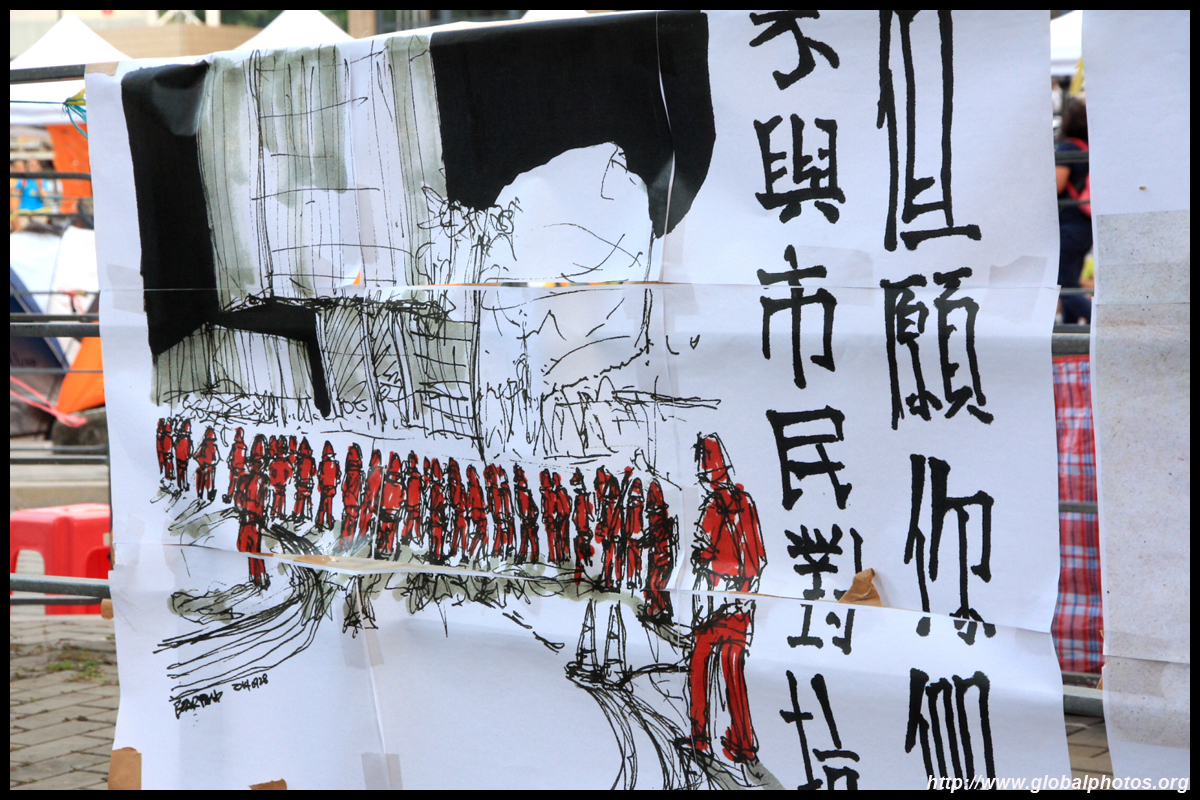 但願你們
不與市民對
http://www.globalphotos.org